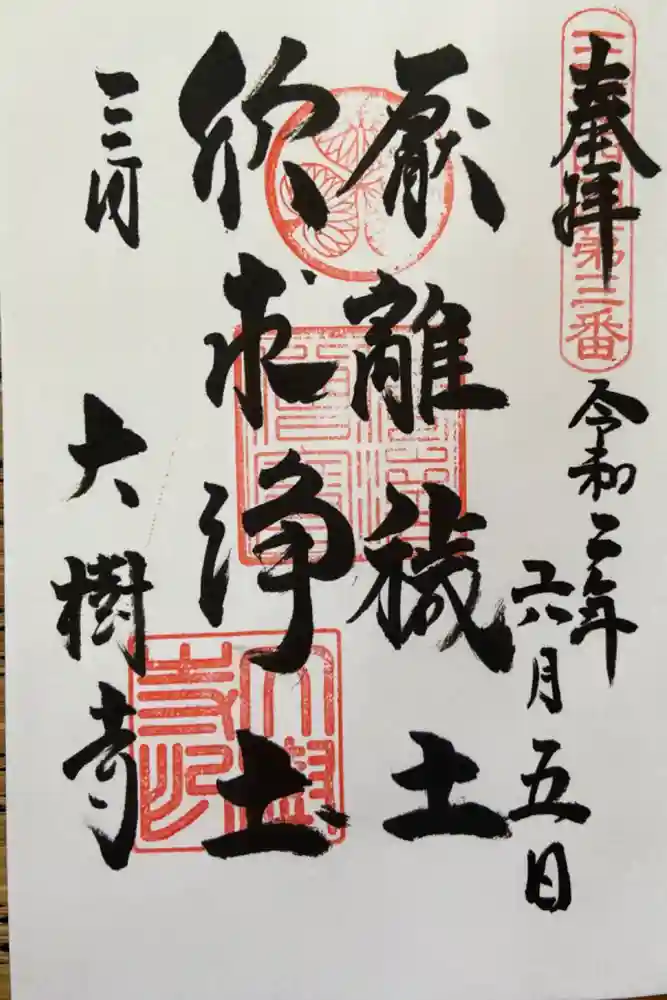 奉拝
第三番
令和二年
六月五日
厭離穢土
欣求浄土
三河
大樹寺
大樹寺印